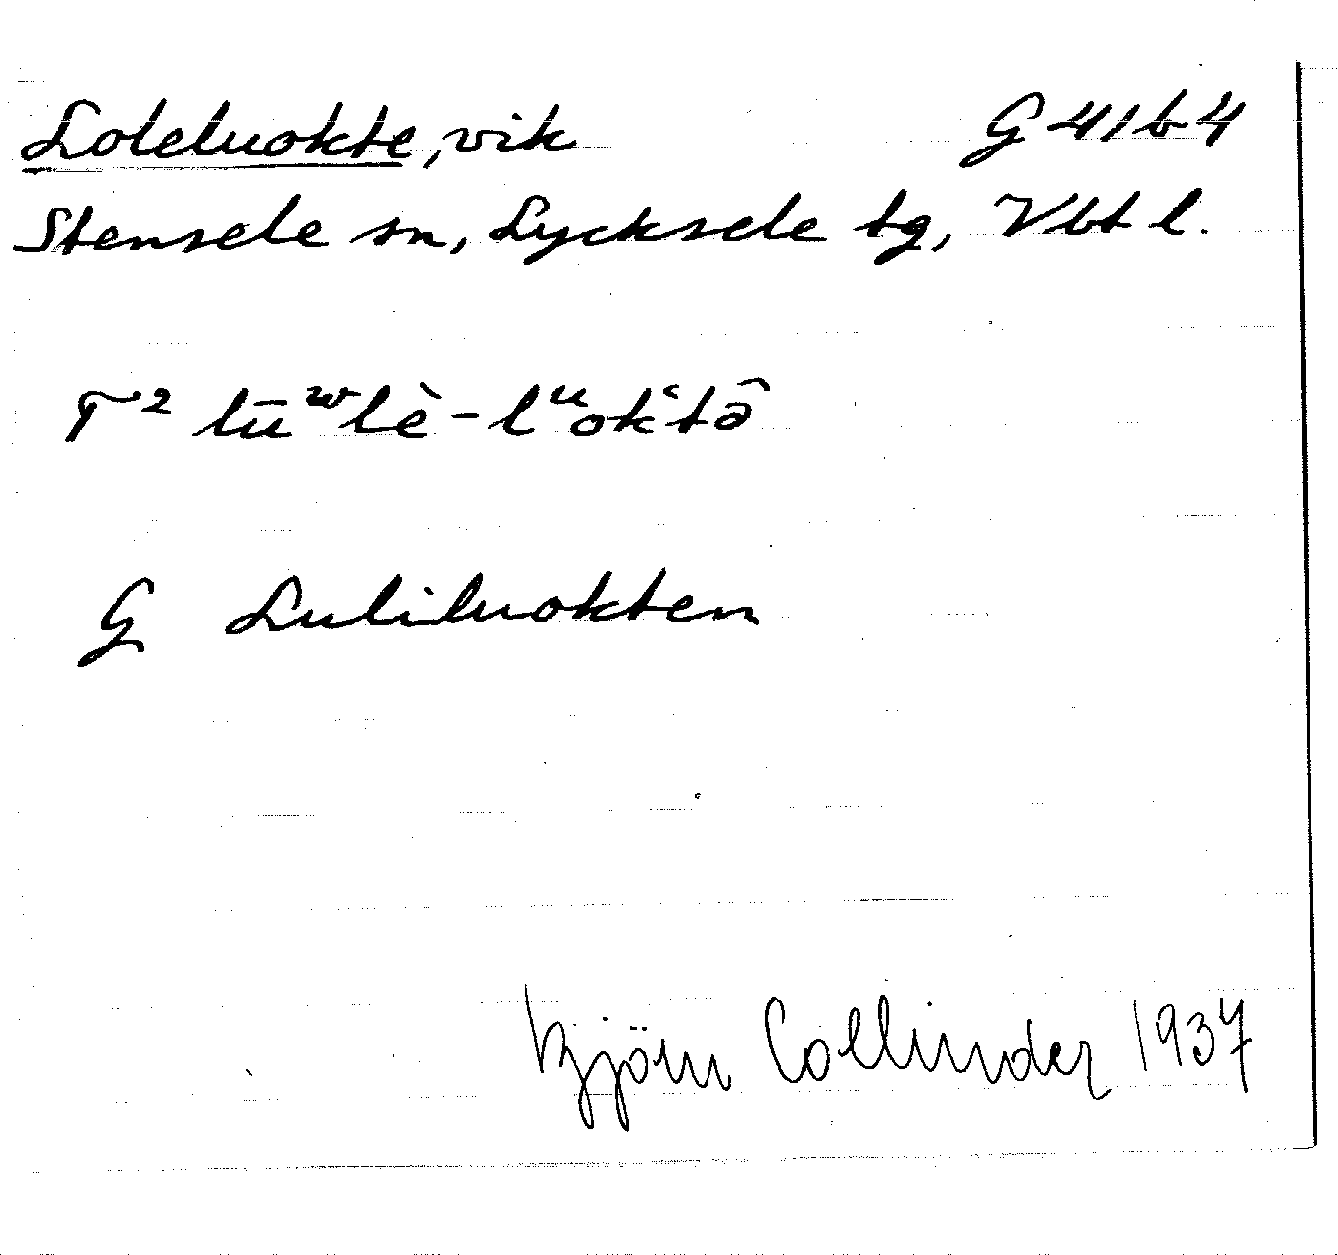 Loleluokte, vik G 41 b 4
Stensele sn, Lycksele tg, Vbt l.
T² lūʷlè-lᵘok‛tə̂
G Luliluokten
Björn Collinder 1937